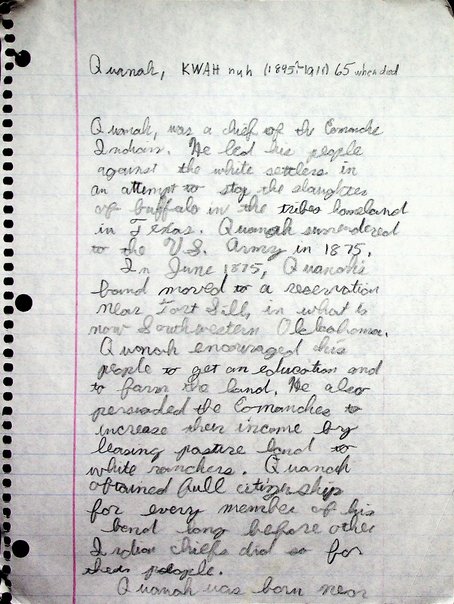 Quanah, KWAH nuh (1895?-1911) 65 when died
Quanah, was a chief of the Comanche
Indian. He led his people
against the white settlers in
an attempt to stop the slaughter
of buffalo in the tribes homeland
in Texas. Quanah surrendered
to the U.S. Army in 1875.
In June 1875, Quanah's
band moved to a reservation
near Fort Sill, in what is
now Southwestern Oklahoma.
Quanah encouraged his
people to get an education and
to farm the land. He also
persuaded the Comanches to
increase their income by
leasing pasture land to
white ranchers. Quanah
obtained full citizenship
for every member of his
band long before other
Indian chiefs did so for
their people.
Quanah was born near